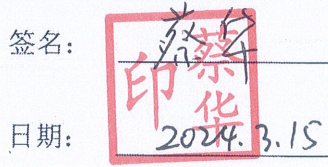 签名：蔡华
蔡华印
日期：2024.3.15